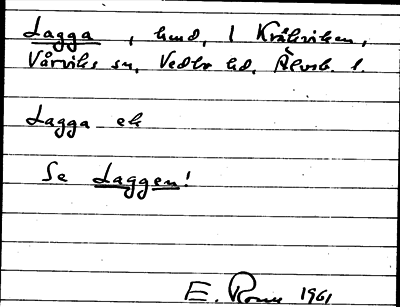 Lagga, hmd, l Kråkviken,
Vårviks sn, Vedbo hd, Älvsb. l.
Lagga ek
Se Laggen!
E. 1961